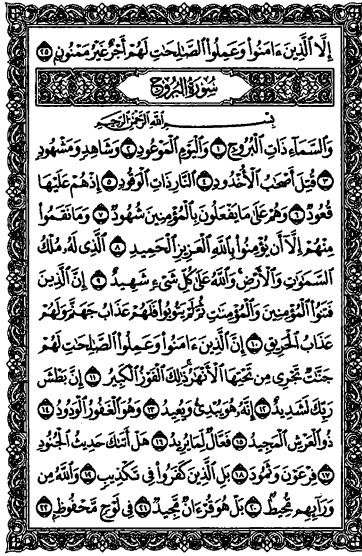 إِلَّا ٱلَّذِينَ ءَامَنُوا۟ وَعَمِلُوا۟ ٱلصَّـٰلِحَـٰتِ لَهُمْ أَجْرٌ غَيْرُ مَمْنُونٍۭ ٢٥
سُورَةُ الْبُرُوجِ
بِسْمِ ٱللَّهِ ٱلرَّحْمَـٰنِ ٱلرَّحِيمِ
وَٱلسَّمَآءِ ذَاتِ ٱلْبُرُوجِ ١ وَٱلْيَوْمِ ٱلْمَوْعُودِ ٢ وَشَاهِدٍ وَمَشْهُودٍ
٣ قُتِلَ أَصْحَـٰبُ ٱلْأُخْدُودِ ٤ ٱلنَّارِ ذَاتِ ٱلْوَقُودِ ٥ إِذْ هُمْ عَلَيْهَا
قُعُودٌ ٦ وَهُمْ عَلَىٰ مَا يَفْعَلُونَ بِٱلْمُؤْمِنِينَ شُهُودٌ ٧ وَمَا نَقَمُوا۟
مِنْهُمْ إِلَّآ أَن يُؤْمِنُوا۟ بِٱللَّهِ ٱلْعَزِيزِ ٱلْحَمِيدِ ٨ ٱلَّذِى لَهُۥ مُلْكُ
ٱلسَّمَـٰوَٰتِ وَٱلْأَرْضِ ۚ وَٱللَّهُ عَلَىٰ كُلِّ شَىْءٍ شَهِيدٌ ٩ إِنَّ ٱلَّذِينَ
فَتَنُوا۟ ٱلْمُؤْمِنِينَ وَٱلْمُؤْمِنَـٰتِ ثُمَّ لَمْ يَتُوبُوا۟ فَلَهُمْ عَذَابُ جَهَنَّمَ وَلَهُمْ
عَذَابُ ٱلْحَرِيقِ ١٠ إِنَّ ٱلَّذِينَ ءَامَنُوا۟ وَعَمِلُوا۟ ٱلصَّـٰلِحَـٰتِ لَهُمْ
جَنَّـٰتٌ تَجْرِى مِن تَحْتِهَا ٱلْأَنْهَـٰرُ ۚ ذَٰلِكَ ٱلْفَوْزُ ٱلْكَبِيرُ ١١ إِنَّ بَطْشَ
رَبِّكَ لَشَدِيدٌ ١٢ إِنَّهُۥ هُوَ يُبْدِئُ وَيُعِيدُ ١٣ وَهُوَ ٱلْغَفُورُ ٱلْوَدُودُ ١٤
ذُو ٱلْعَرْشِ ٱلْمَجِيدُ ١٥ فَعَّالٌ لِّمَا يُرِيدُ ١٦ هَلْ أَتَىٰكَ حَدِيثُ ٱلْجُنُودِ
١٧ فِرْعَوْنَ وَثَمُودَ ١٨ بَلِ ٱلَّذِينَ كَفَرُوا۟ فِى تَكْذِيبٍ ١٩ وَٱللَّهُ مِن
وَرَآئِهِم مُّحِيطٌۢ ٢٠ بَلْ هُوَ قُرْءَانٌ مَّجِيدٌ ٢١ فِى لَوْحٍ مَّحْفُوظٍۭ ٢٢